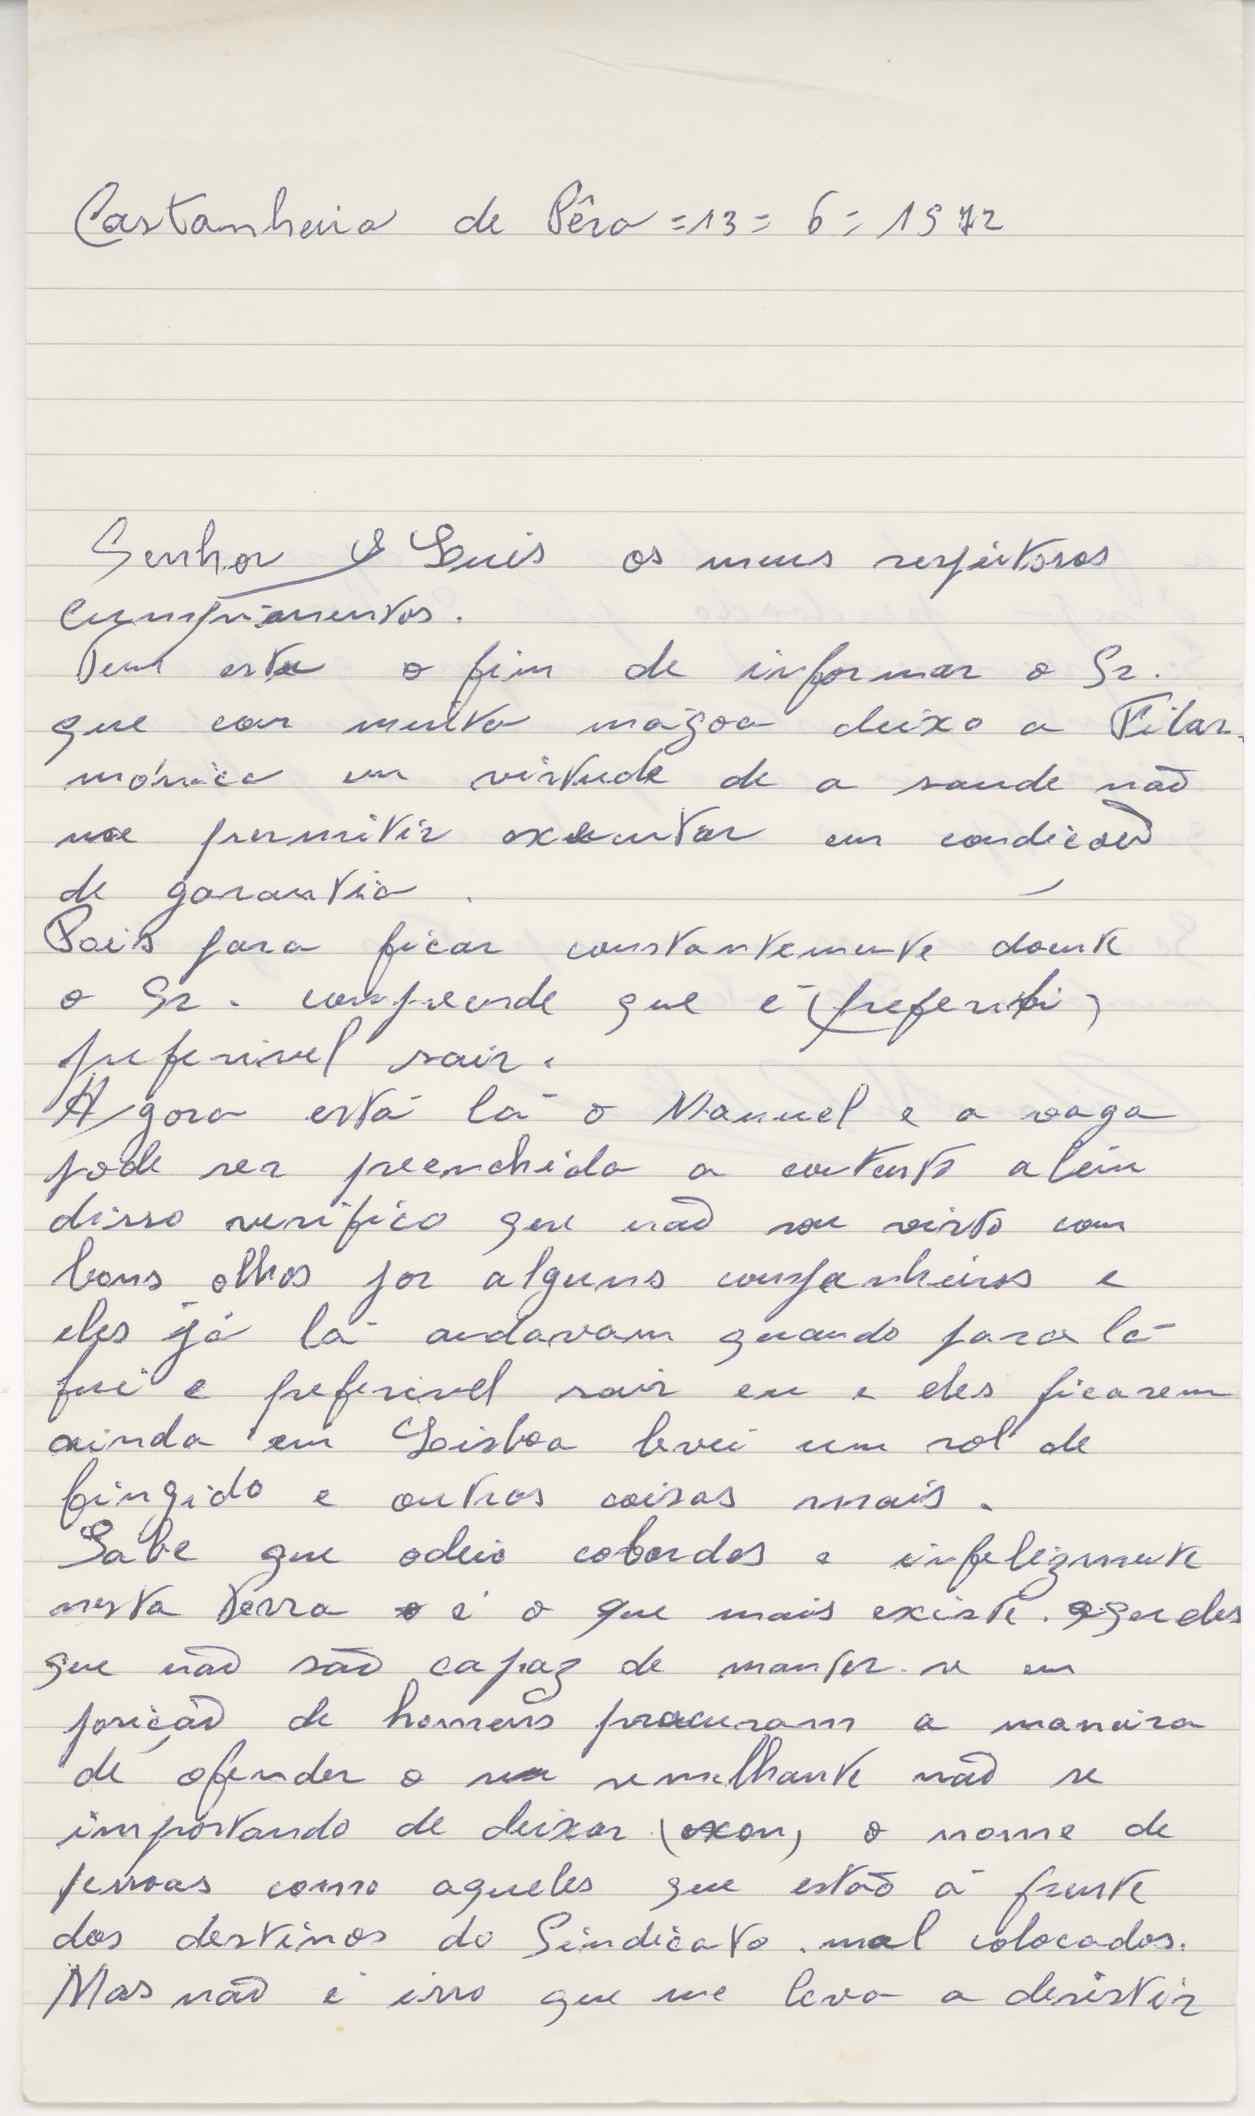 Castanheira de Pêra =13= 6= 1972
Senhor Luis os meus respeitosos
cumprimentos.
Tem esta o fim de informar o Sr.
que com muita mágoa deixo a Filar-
mónica em virtude de a saude não
me permitir executar em condicoẽs
de garantia.
Pois para ficar constantemente doente
o Sr. compreende que é (preferibi)
preferivel sair.
Agora está lá o Manuel e a vaga
pode ser preenchida a contento alem
disso verifico que não sou visto com
bons olhos por alguns companheiros e
eles já lá andavam quando para lá
fui e preferivel sair eu e eles ficarem
ainda em Lisboa levei um rol de
fingido e outras coisas mais.
Sabe que odeio cobardes e infelizmente
nesta terra é o que mais existe. aqueles
que não são capaz de manter-se em
posição de homens procuram a maneira
de ofender o seu semelhante não se
importando de deixar (exon) o nome de
pessoas como aqueles que estão á frente
dos destinos do Sindicato. mal colocados.
Mas não é isso que me leva a desistir